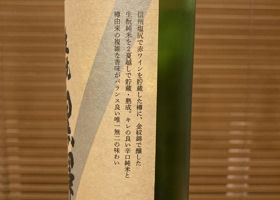 信州塩尻で赤ワインを貯蔵した樽に、金紋錦で醸した
生酛純米を2夏越しで貯蔵・熟成。キレの良い辛口純米と
樽由来の複雑な香味がバランス良い唯一無二の味わい